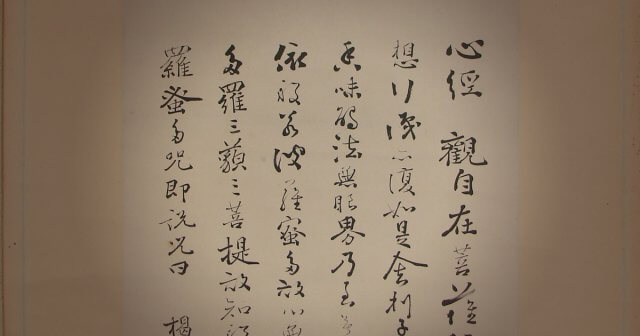 心經 觀自在菩薩
想行識亦復如是舍利子
香味觸法無眼界乃至無
依般若波羅蜜多故心無
多羅三藐三菩提故知般
羅蜜多咒即說咒曰 揭